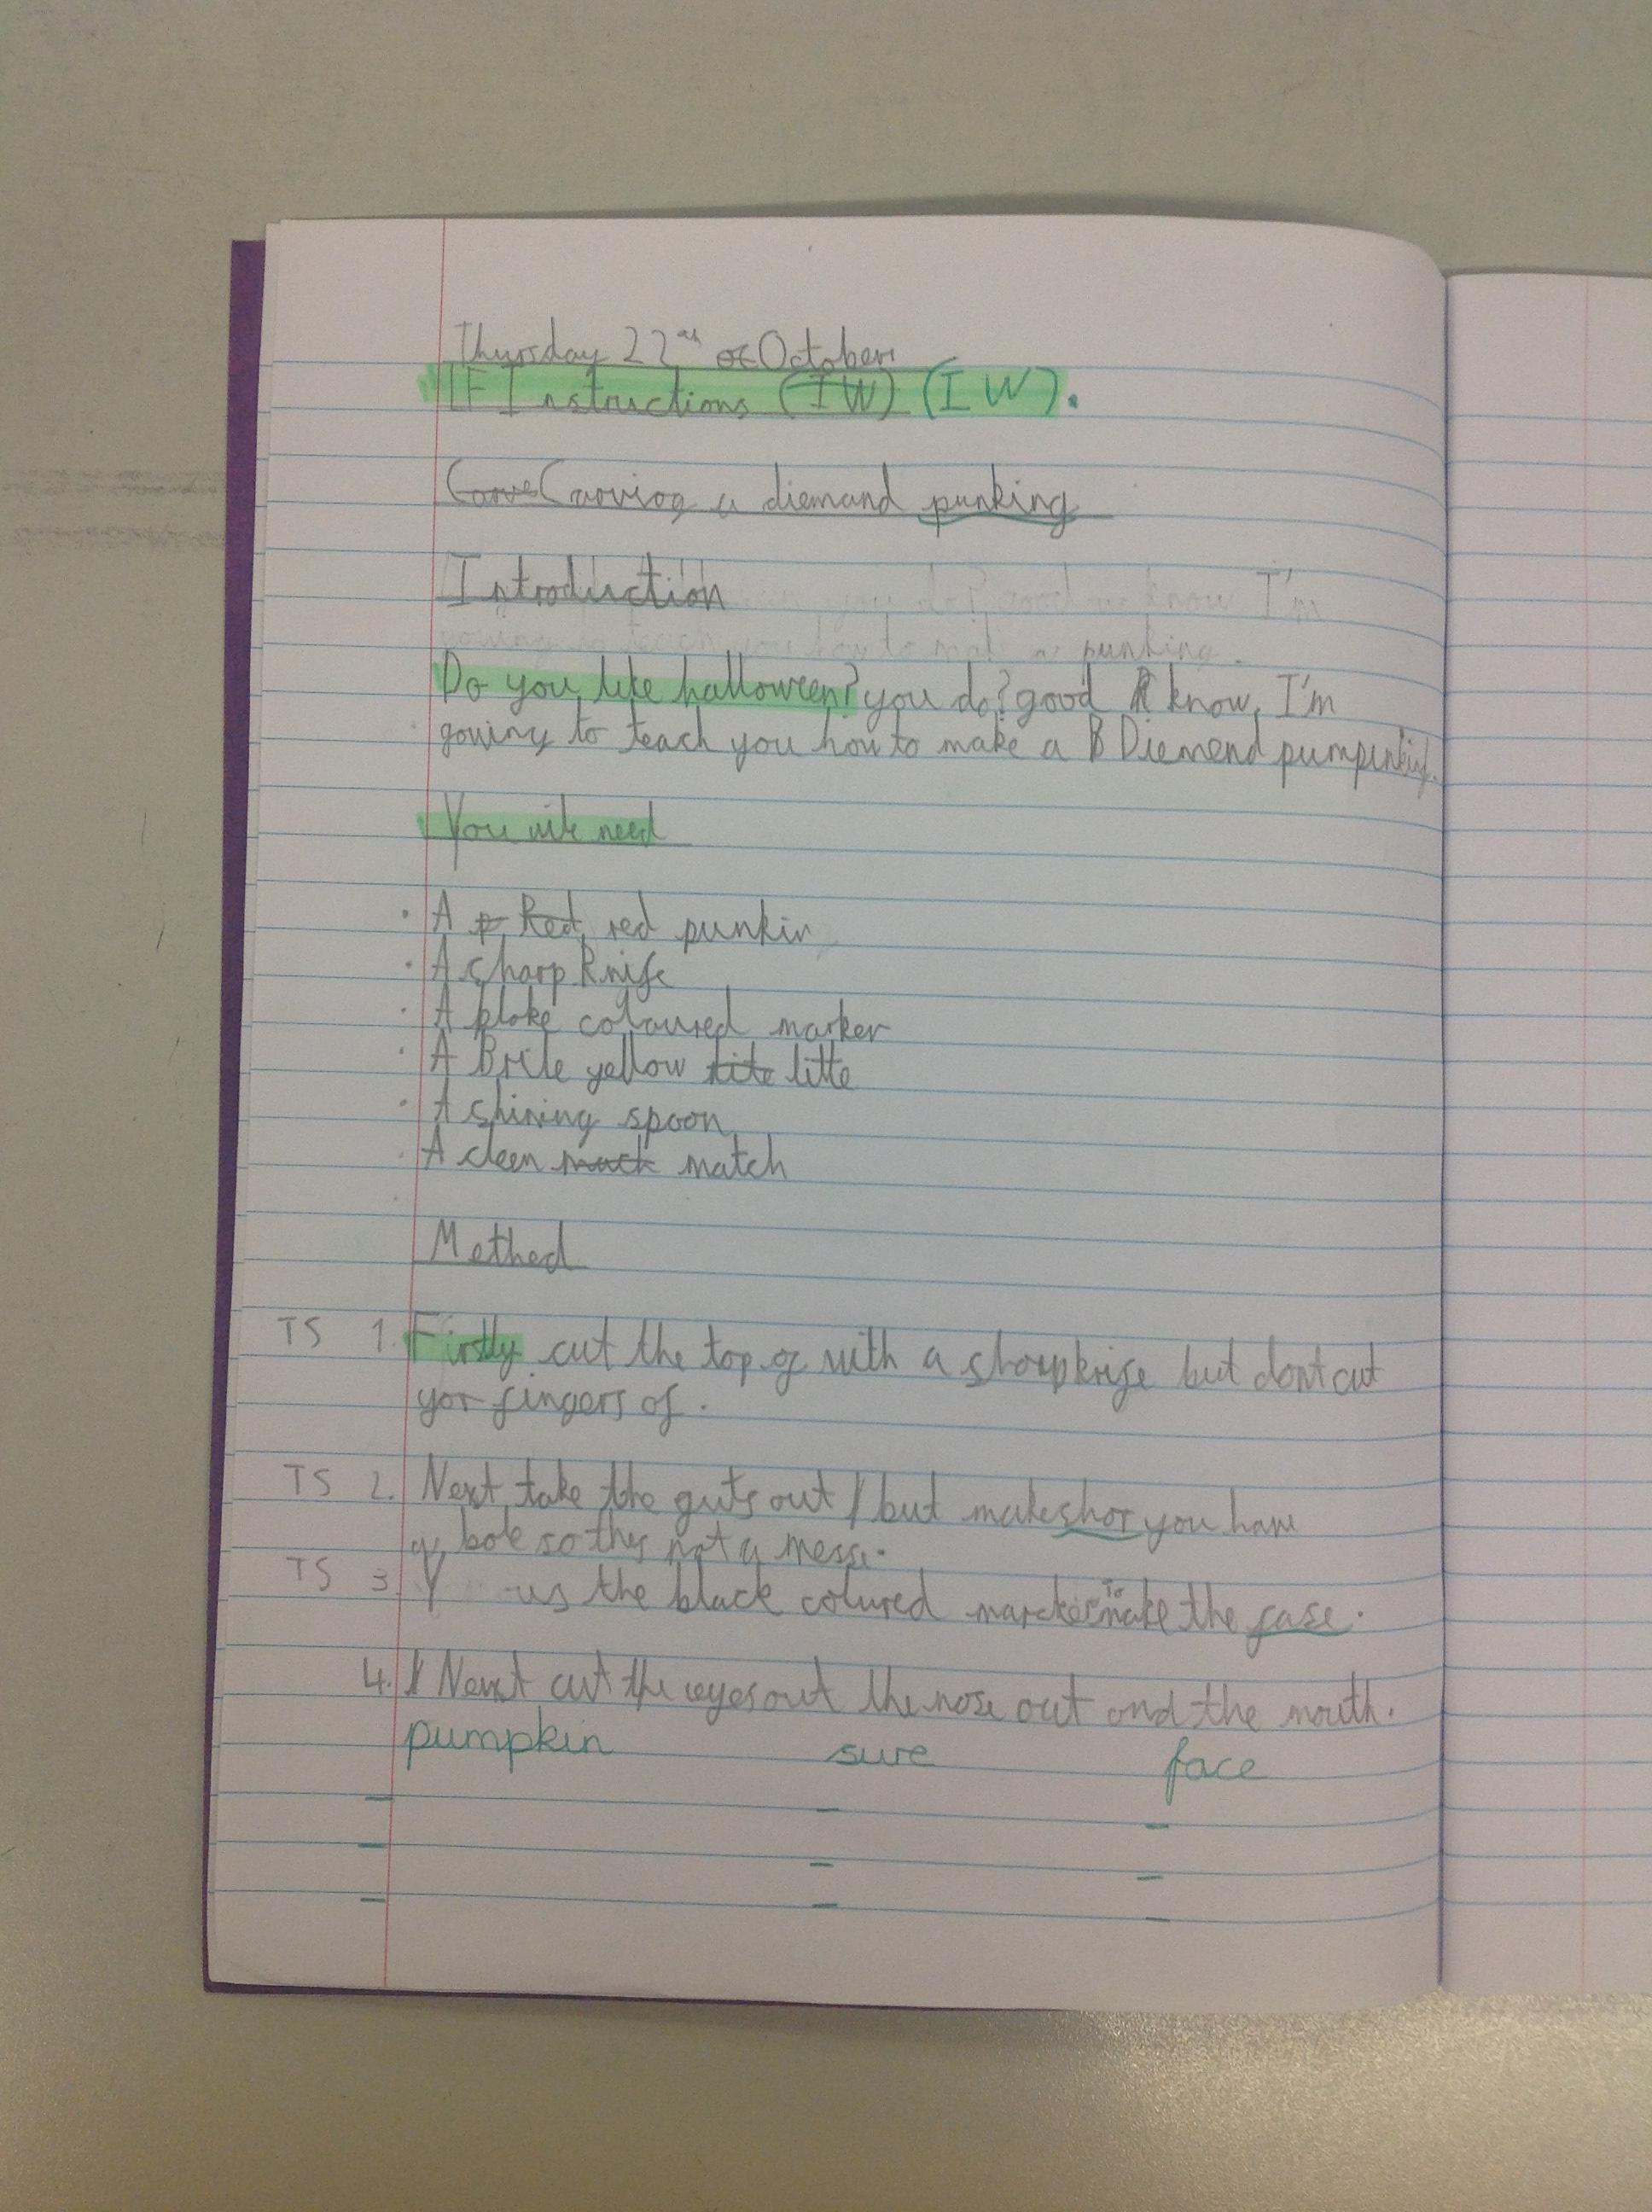 Thursday 22nd of October
LF Instructions (IW) (IW).
Carve Carving a diemand punking
Introduction I'm
punking.
Do you like halloween? you do? good know, I'm
gowing to teach you how to make a B Diemend
You wile need
· A p Red red punkin
· A sharp knife
· A bloke coloured marker
· A Brite yellow tite litte
· A shining spoon
· A cleen match
Method
TS 1. Firstly cut the top of with a sharp knife but dont cut
yor fingers of.
TS 2. Next take the guts out but make shor you have
a bole so thes not a mess.
TS 3. us the black colured marcker to make the fase.
4. Next cut the eyes out the nose out and the mouth.
pumpkin sure face